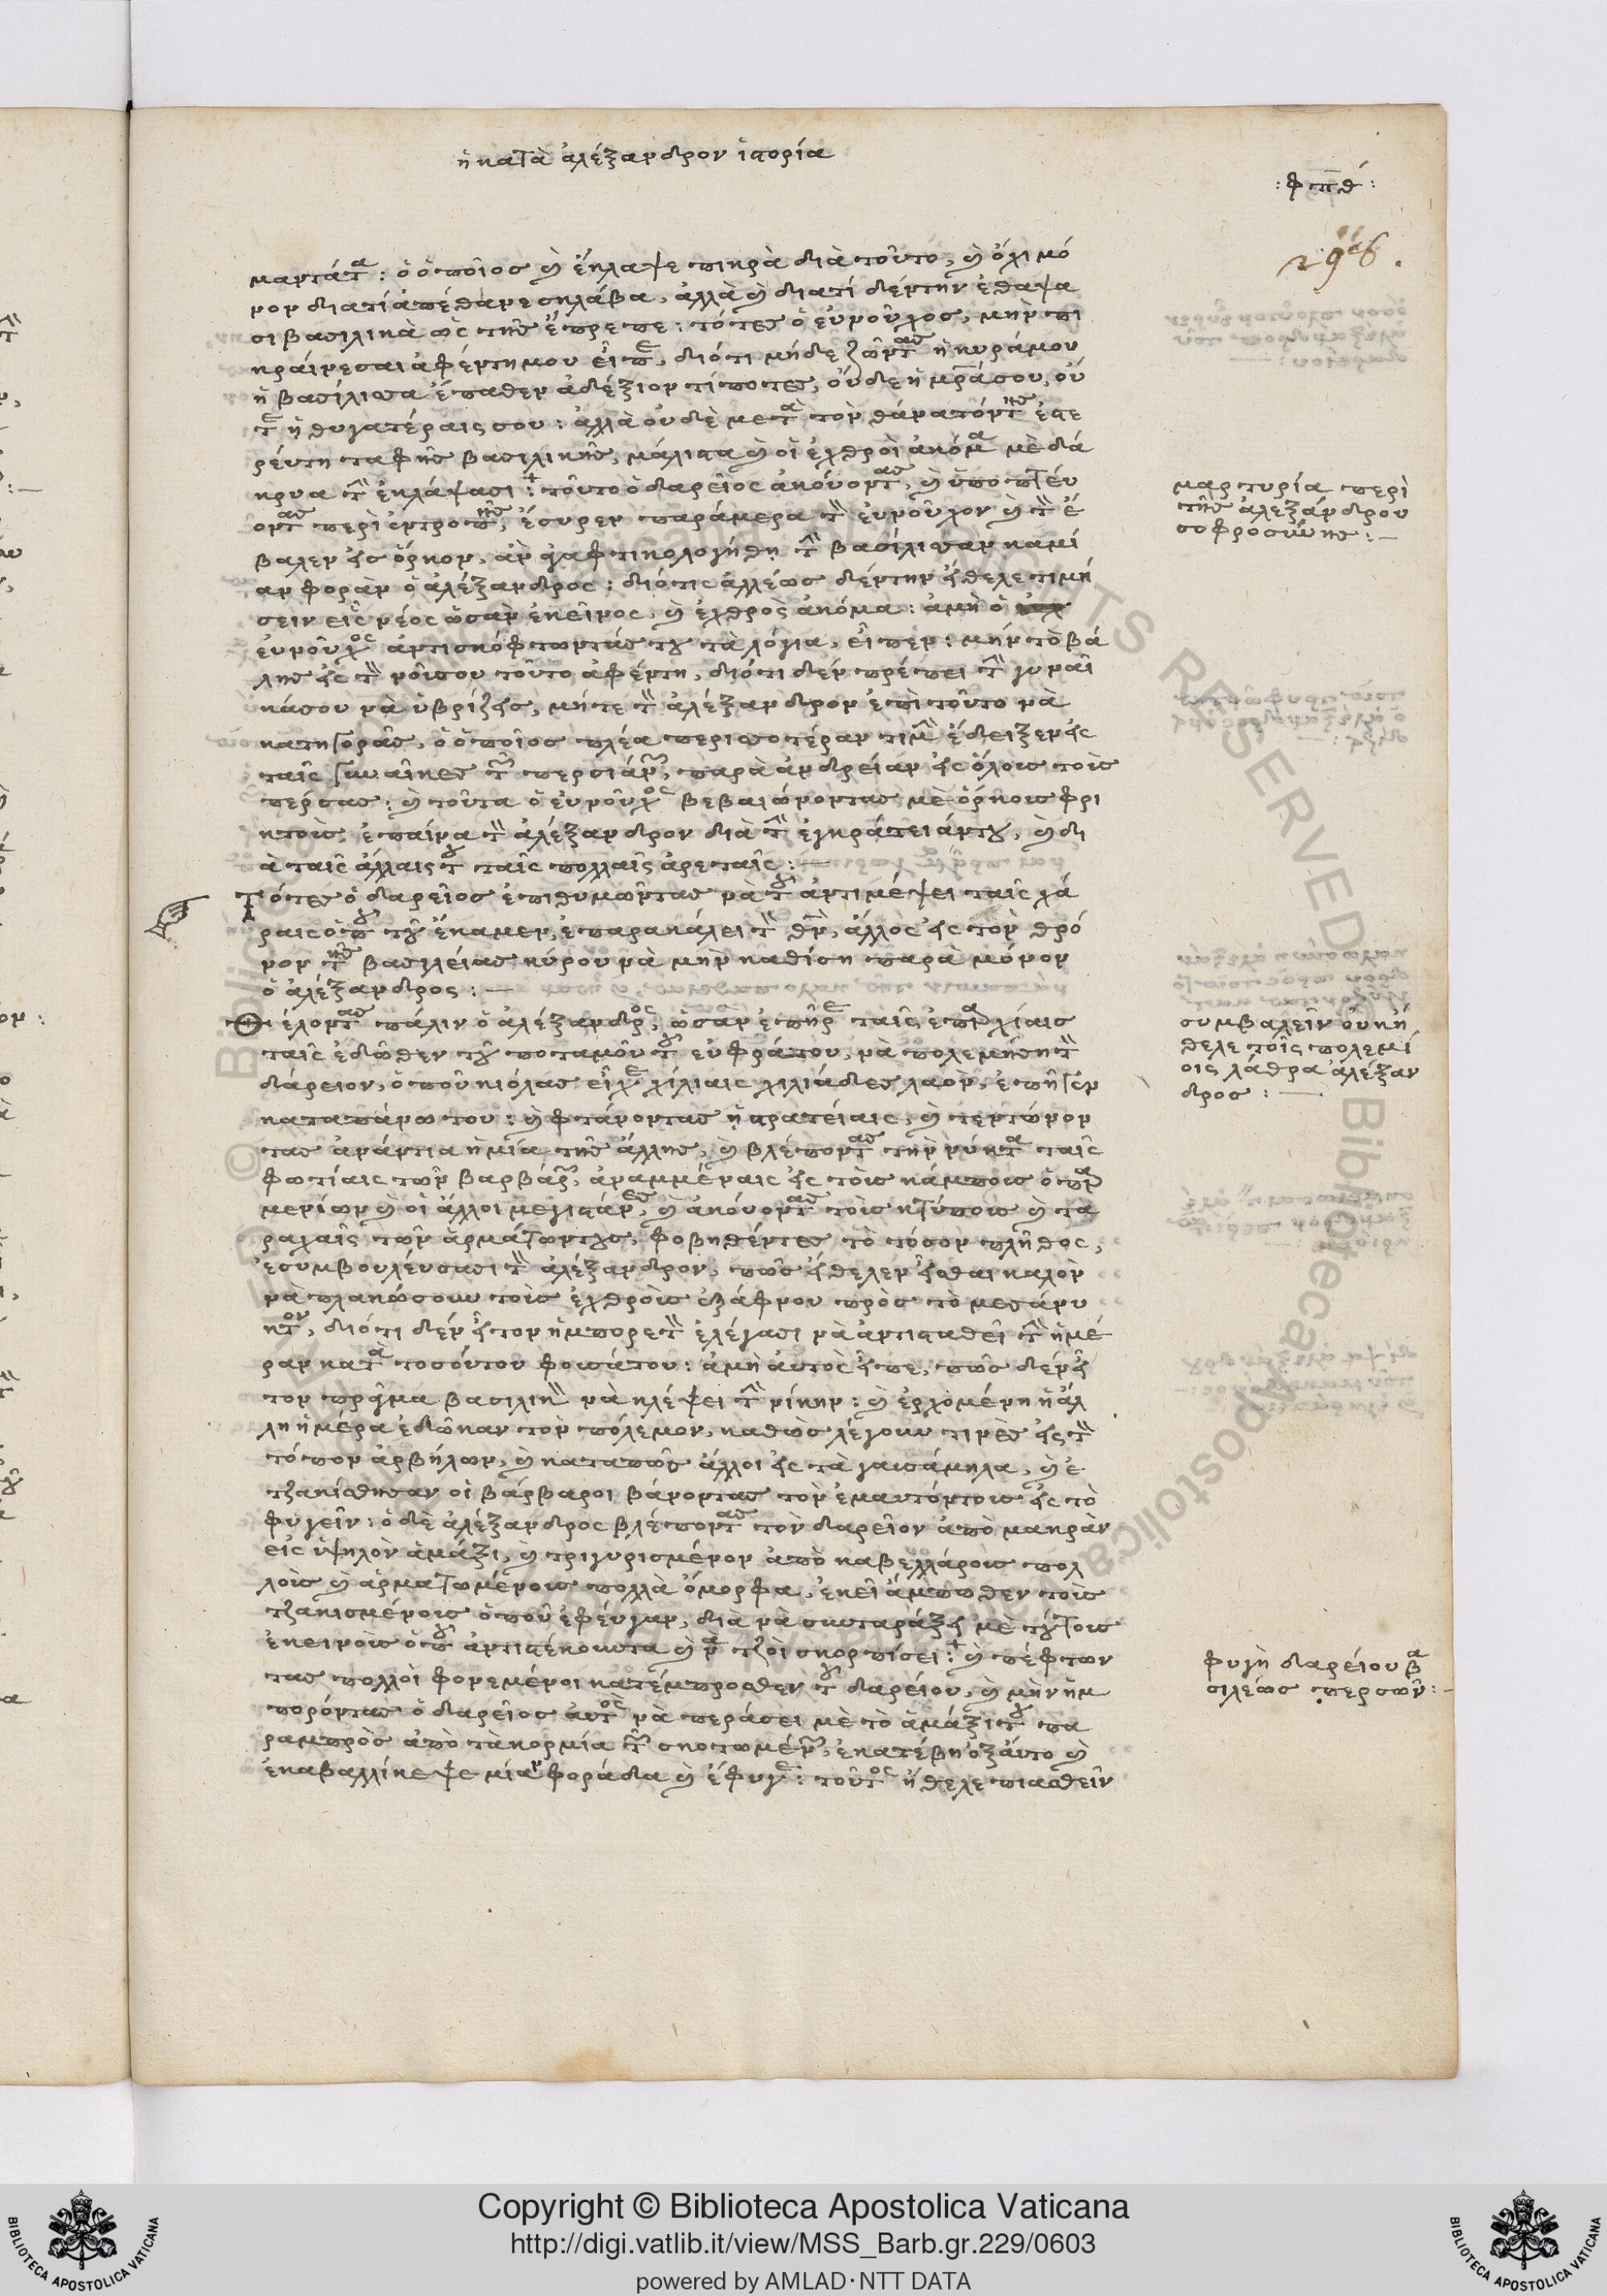 ἡ κατὰ ἀλέξανδρον ἱστορία
: φπθ :
296.
μαντάτα : ὁ ὁποῖος καὶ ἔκλαψε πικρὰ διὰ τοῦτο, καὶ ὄχι μό
νον διατί ἀπέθανε σκλάβα, ἀλλὰ καὶ διατί δέντην ἔθαψα
σι βασιλικὰ ὡς τῆς ἔπρεπε : τότες ὁ εὐνοῦχος, μὴν πι
κραίνεσαι ἀφέντη μου εἶπε, διότι μήδε ζῶντας ἡ κυράμου
ἡ βασίλισσα ἔπαθεν ἀδέξιον τίποτες, οὐδε ἡ μητράσου, οὔ
τε ἡ θυγατέραις σου : ἀλλὰ οὐδὲ μετὰ τὸν θάνατόντης ἐστε
ρεύτη ταφῆς βασιλικῆς, μάλιστα καὶ οἱ ἐχθροὶ ἀκόμα μὲ δά
κρυα τὴν ἐκλάψασι : τοῦτο ὁ δαρεῖος ἀκούοντας, καὶ ὑποπτεύ
οντας περὶ ἐντροπῆς, ἔσυρεν παράμερα τὸν εὐνοῦχον καὶ τὸν ἔ
βαλεν εἰς ὅρκον, ἂν
βασίλισσαν καμί
αν φορὰν ὁ ἀλέξανδρος : διότις ἀλλέως δέντην ἤθελε τιμή
σειν εἷς νέος ὡσὰν ἐκεῖνος, καὶ ἐχθρὸς ἀκόμα : ἀμὴ ὁ
εὐνοῦχος ἀντισκόφτωντάς του τὰ λόγια, εἶπεν : μὴν τὸ βά
λῃς εἰς τὸν νοῦσου τοῦτο ἀφέντη, διότι δὲν πρέπει τὴν γυναῖ
κάσου νὰ ὑβρίζεις, μήτε τὸν ἀλέξανδρον ἐπὶ τοῦτο νὰ
κατηγορᾶς, ὁ ὁποῖος πλέα περισσοτέραν τιμὴν ἔδειξεν εἰς
ταῖς γυναῖκες τῶν περσιάνων, παρὰ ἀνδρείαν εἰς ὅλους τοὺς
πέρσας : καὶ τοῦτα ὁ εὐνοῦχος βεβαιώνοντας μὲ ὅρκους φρι
κτοὺς, ἐπαίνα τὸν ἀλέξανδρον διὰ τὴν ἐγκράτειάντου, καὶ δι
ὰ ταῖς ἄλλαις του ταῖς πολλαῖς ἀρεταῖς : —
Τότες ὁ δαρεῖος ἐπιθυμῶντας νὰ τοῦ ἀντιμέψει ταῖς χά
ραις ὁποῦ τοῦ ἔκαμεν, ἐπαρακάλει τὸν θεὸν, ἄλλος εἰς τὸν θρό
νον τῆς βασιλείας κύρου νὰ μὴν καθίση παρὰ μόνον
ὁ ἀλέξανδρος : —
Θέλοντας πάλιν ὁ ἀλέξανδρος, ὡσὰν ἐπῆρε ταῖς ἐπαρχίαις
ταῖς ἐδῶθεν τοῦ ποταμοῦ τοῦ εὐφράτου, νὰ πολεμήση τὸν
δάρειον, ὁποῦ κιόλας εἶχε χίλιαις χιλιάδες λαὸν, ἐπῆγεν
καταπάνω του : καὶ φτάνοντας ἡ στρατείαις, καὶ τεντώνον
τας ἀνάντια ἡ μία τῆς ἄλλης, καὶ βλέποντας τὴν νύκτα ταῖς
φωτίαις τῶν βαρβάρων, ἀναμμέναις εἰς τοὺς κάμπους ὁ παρ
μενίων καὶ οἱ ἄλλοι μεγιστάνες, καὶ ἀκούοντας τοὺς κτύπους καὶ τα
ραχαῖς τῶν ἀρμάτωντους, φοβηθέντες τὸ τόσον πλῆθος,
ἐσυμβουλεύσασι τὸν ἀλέξανδρον, πῶς ἤθελεν εἶσθαι καλὸν
νὰ πλακώσουν τοὺς ἐχθροὺς ἐξάφνου πρὸς τὸ μεσάνυ
κτον, διότι δὲν ἦτον ἠμπορετὸν ἐλέγασι νὰ ἀντισταθεῖ τὴν ἡμέ
ραν κατὰ τοσούτου φουσάτου : ἀμὴ αὐτὸς εἶπε, πῶς δὲν εἶ
τον πρᾶγμα βασιλικὸν νὰ κλέψει τὴν νίκην : καὶ ἐρχομένη ἡ ἄλ
λη ἡμέρα ἐδῶκαν τὸν πόλεμον, καθὼς λέγουν τινὲς εἰς τὸν
τόπον ἀρβήλων, καὶ καταπῶς ἄλλοι εἰς τὰ γαυσάμηλα, καὶ ἐ
τζακίσθησαν οἱ βάρβαροι βάνοντας τὸν ἐμαυτόντους εἰς τὸ
φυγεῖν : ὁ δὲ ἀλέξανδρος βλέποντας τὸν δαρεῖον ἀπὸ μακρὰν
εἰς ὑψηλὸν ἁμάξι, καὶ τριγυρισμένον ἀπὸ καβελλάρους πολ
λοὺς καὶ ἀρματωμένους πολλὰ ὄμορφα, ἐκεῖ ἄμπωθεν τοὺς
τζακισμένους ὁποῦ ἐφεύγαν, διὰ νὰ συνταράξει μὲ τούτους
ἐκεινοὺς ὁποῦ ἀντιστέκουντα καὶ νὰ τζοὶ σκορπίσει : καὶ πέφτων
τας πολλοὶ φονεμένοι κατέμπροσθεν τοῦ δαρείου, καὶ μὴν ἠμ
πορόντας ὁ δαρεῖος αὐτὸς νὰ περάσει μὲ τὸ ἁμάξι του πα
ραμπρὸς ἀπὸ τὰ κορμία τῶν σκοτωμένων, ἐκατέβη ὀξάυτο καὶ
ἐκαβαλλίκεψε μίαν φοράδα καὶ ἔφυγε : τοῦτος ἤθελε πιασθεῖν
μαρτυρία περὶ
τῆς ἀλεξάνδρου
σοφροσύνης : —
συμβαλεῖν οὐκ ἤ
θελε τοῖς πολεμί
οις λάθρα ἀλέξαν
δρος : —
φυγὴ δαρείου βα
σιλέως περσῶν : —
Copyright © Biblioteca Apostolica Vaticana
http://digi.vatlib.it/view/MSS_Barb.gr.229/0603
powered by AMLAD·NTT DATA